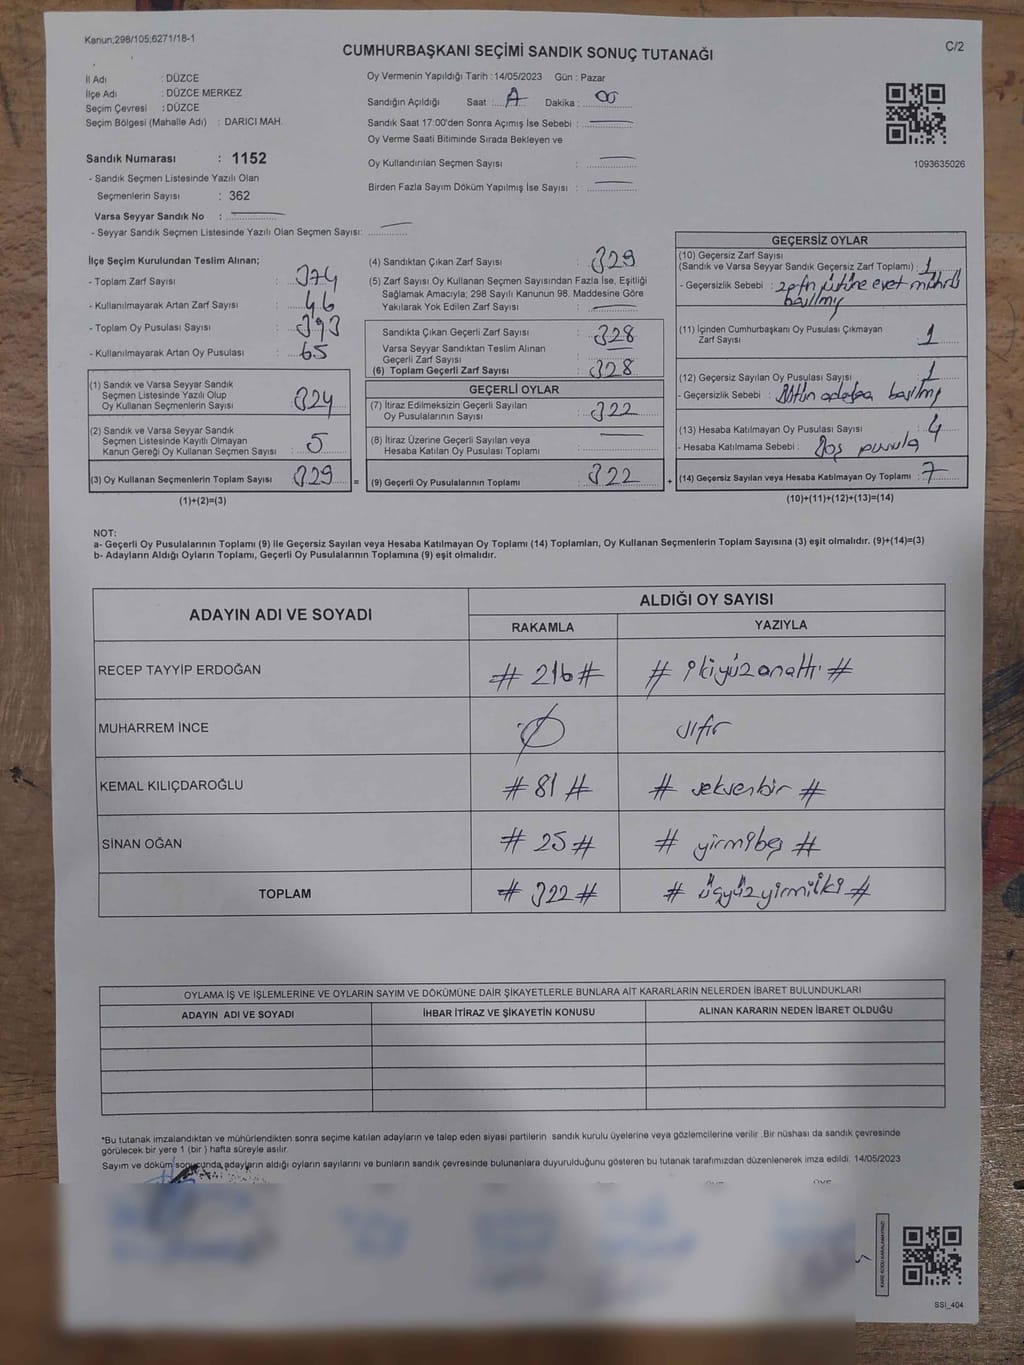 Kanun;298/105;6271/18-1
CUMHURBAŞKANI SEÇİMİ SANDIK SONUÇ TUTANAĞI
C/2
İl Adı : DÜZCE
İlçe Adı : DÜZCE MERKEZ
Seçim Çevresi : DÜZCE
Seçim Bölgesi (Mahalle Adı) : DARICI MAH.
Sandık Numarası : 1152
- Sandık Seçmen Listesinde Yazılı Olan
Seçmenlerin Sayısı : 362
Varsa Seyyar Sandık No :
- Seyyar Sandık Seçmen Listesinde Yazılı Olan Seçmen Sayısı:
Oy Vermenin Yapıldığı Tarih : 14/05/2023 Gün : Pazar
Sandığın Açıldığı Saat : Dakika : 00
Sandık Saat 17:00'den Sonra Açımış İse Sebebi :
Oy Verme Saati Bitiminde Sırada Bekleyen ve
Oy Kullandırılan Seçmen Sayısı :
Birden Fazla Sayım Döküm Yapılmış İse Sayısı :
1093635026
İlçe Seçim Kurulundan Teslim Alınan;
- Toplam Zarf Sayısı : 374
- Kullanılmayarak Artan Zarf Sayısı : 46
- Toplam Oy Pusulası Sayısı : 393
- Kullanılmayarak Artan Oy Pusulası : 65
(1) Sandık ve Varsa Seyyar Sandık
Seçmen Listesinde Yazılı Olup
Oy Kullanan Seçmenlerin Sayısı : 324
(2) Sandık ve Varsa Seyyar Sandık
Seçmen Listesinde Kayıtlı Olmayan
Kanun Gereği Oy Kullanan Seçmen Sayısı : 5
(3) Oy Kullanan Seçmenlerin Toplam Sayısı : 329 =
(1)+(2)=(3)
(4) Sandıktan Çıkan Zarf Sayısı : 329
(5) Zarf Sayısı Oy Kullanan Seçmen Sayısından Fazla İse, Eşitliği
Sağlamak Amacıyla; 298 Sayılı Kanunun 98. Maddesine Göre
Yakılarak Yok Edilen Zarf Sayısı :
Sandıkta Çıkan Geçerli Zarf Sayısı : 328
Varsa Seyyar Sandıktan Teslim Alınan
Geçerli Zarf Sayısı :
(6) Toplam Geçerli Zarf Sayısı : 328
GEÇERLİ OYLAR
(7) İtiraz Edilmeksizin Geçerli Sayılan
Oy Pusulalarının Sayısı : 322
(8) İtiraz Üzerine Geçerli Sayılan veya
Hesaba Katılan Oy Pusulası Toplamı :
(9) Geçerli Oy Pusulalarının Toplamı : 322 +
GEÇERSİZ OYLAR
(10) Geçersiz Zarf Sayısı
(Sandık ve Varsa Seyyar Sandık Geçersiz Zarf Toplamı) : 1
- Geçersizlik Sebebi : üstüne evet mührü
basılmış
(11) İçinden Cumhurbaşkanı Oy Pusulası Çıkmayan
Zarf Sayısı : 1
(12) Geçersiz Sayılan Oy Pusulası Sayısı : 1
- Geçersizlik Sebebi : Bütün adaylara basılmış
(13) Hesaba Katılmayan Oy Pusulası Sayısı : 4
- Hesaba Katılmama Sebebi : Boş pusula
(14) Geçersiz Sayılan veya Hesaba Katılmayan Oy Toplamı : 7
(10)+(11)+(12)+(13)=(14)
NOT:
a- Geçerli Oy Pusulalarının Toplamı (9) ile Geçersiz Sayılan veya Hesaba Katılmayan Oy Toplamı (14) Toplamları, Oy Kullanan Seçmenlerin Toplam Sayısına (3) eşit olmalıdır. (9)+(14)=(3)
b- Adayların Aldığı Oyların Toplamı, Geçerli Oy Pusulalarının Toplamına (9) eşit olmalıdır.
ADAYIN ADI VE SOYADI
ALDIĞI OY SAYISI
RAKAMLA YAZIYLA
RECEP TAYYİP ERDOĞAN # 216 # # ikiyüzonaltı #
MUHARREM İNCE Ø sıfır
KEMAL KILIÇDAROĞLU # 81 # # seksenbir #
SİNAN OĞAN # 25 # # yirmibeş #
TOPLAM # 322 # # üçyüzyirmiiki #
OYLAMA İŞ VE İŞLEMLERİNE VE OYLARIN SAYIM VE DÖKÜMÜNE DAİR ŞİKAYETLERLE BUNLARA AİT KARARLARIN NELERDEN İBARET BULUNDUKLARI
ADAYIN ADI VE SOYADI İHBAR İTİRAZ VE ŞİKAYETİN KONUSU ALINAN KARARIN NEDEN İBARET OLDUĞU
*Bu tutanak imzalandıktan ve mühürlendikten sonra seçime katılan adayların ve talep eden siyasi partilerin sandık kurulu üyelerine veya gözlemcilerine verilir .Bir nüshası da sandık çevresinde
görülecek bir yere 1 (bir ) hafta süreyle asılır.
Sayım ve döküm sonucunda adayların aldığı oyların sayılarını ve bunların sandık çevresinde bulunanlara duyurulduğunu gösteren bu tutanak tarafımızdan düzenlenerek imza edildi. 14/05/2023
KARE KODU KARALAMAYINIZ!
SSI_404